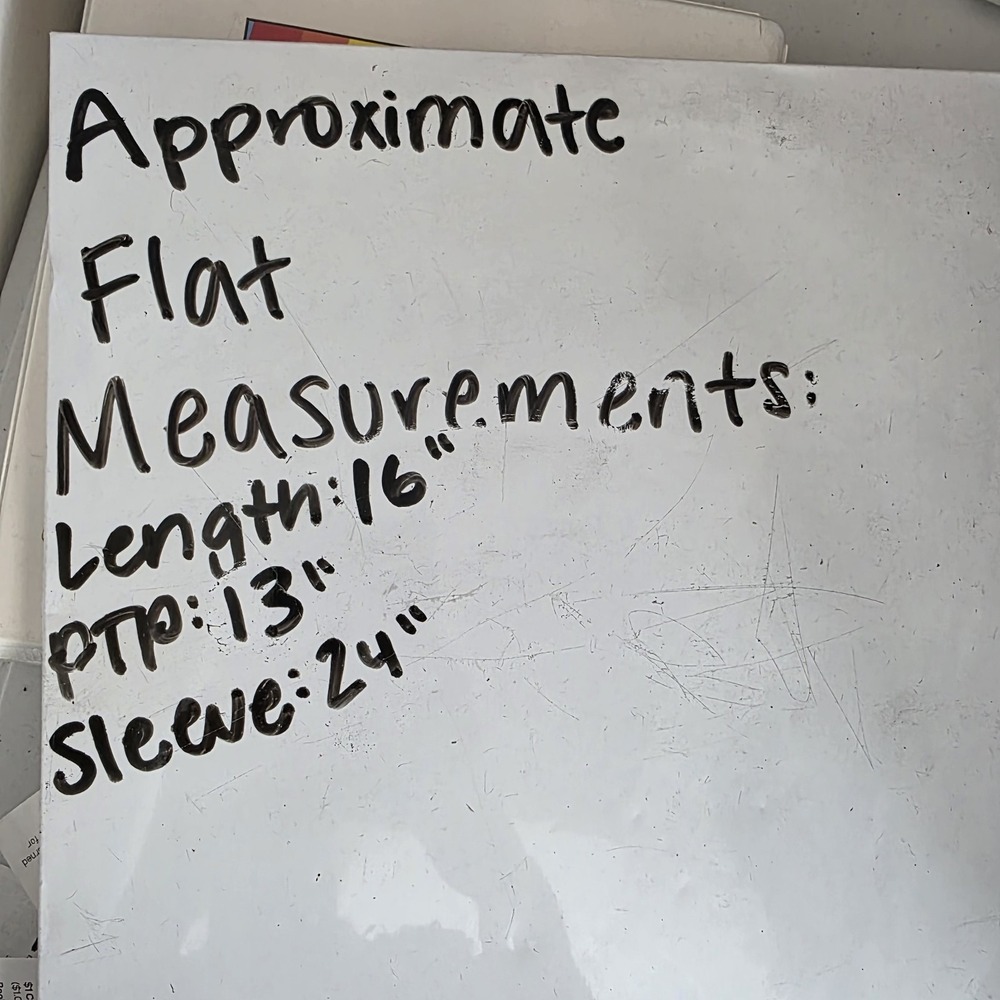 Approximate
Flat
Measurements:
Length: 16"
PTP: 13"
Sleeve: 24"
for